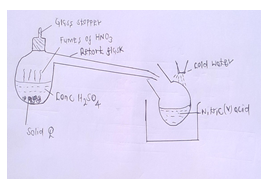 Glass stopper
Fumes of HNO3
Retort flask
Cold water
Conc H2SO4
Nitric(V) acid
Solid Q